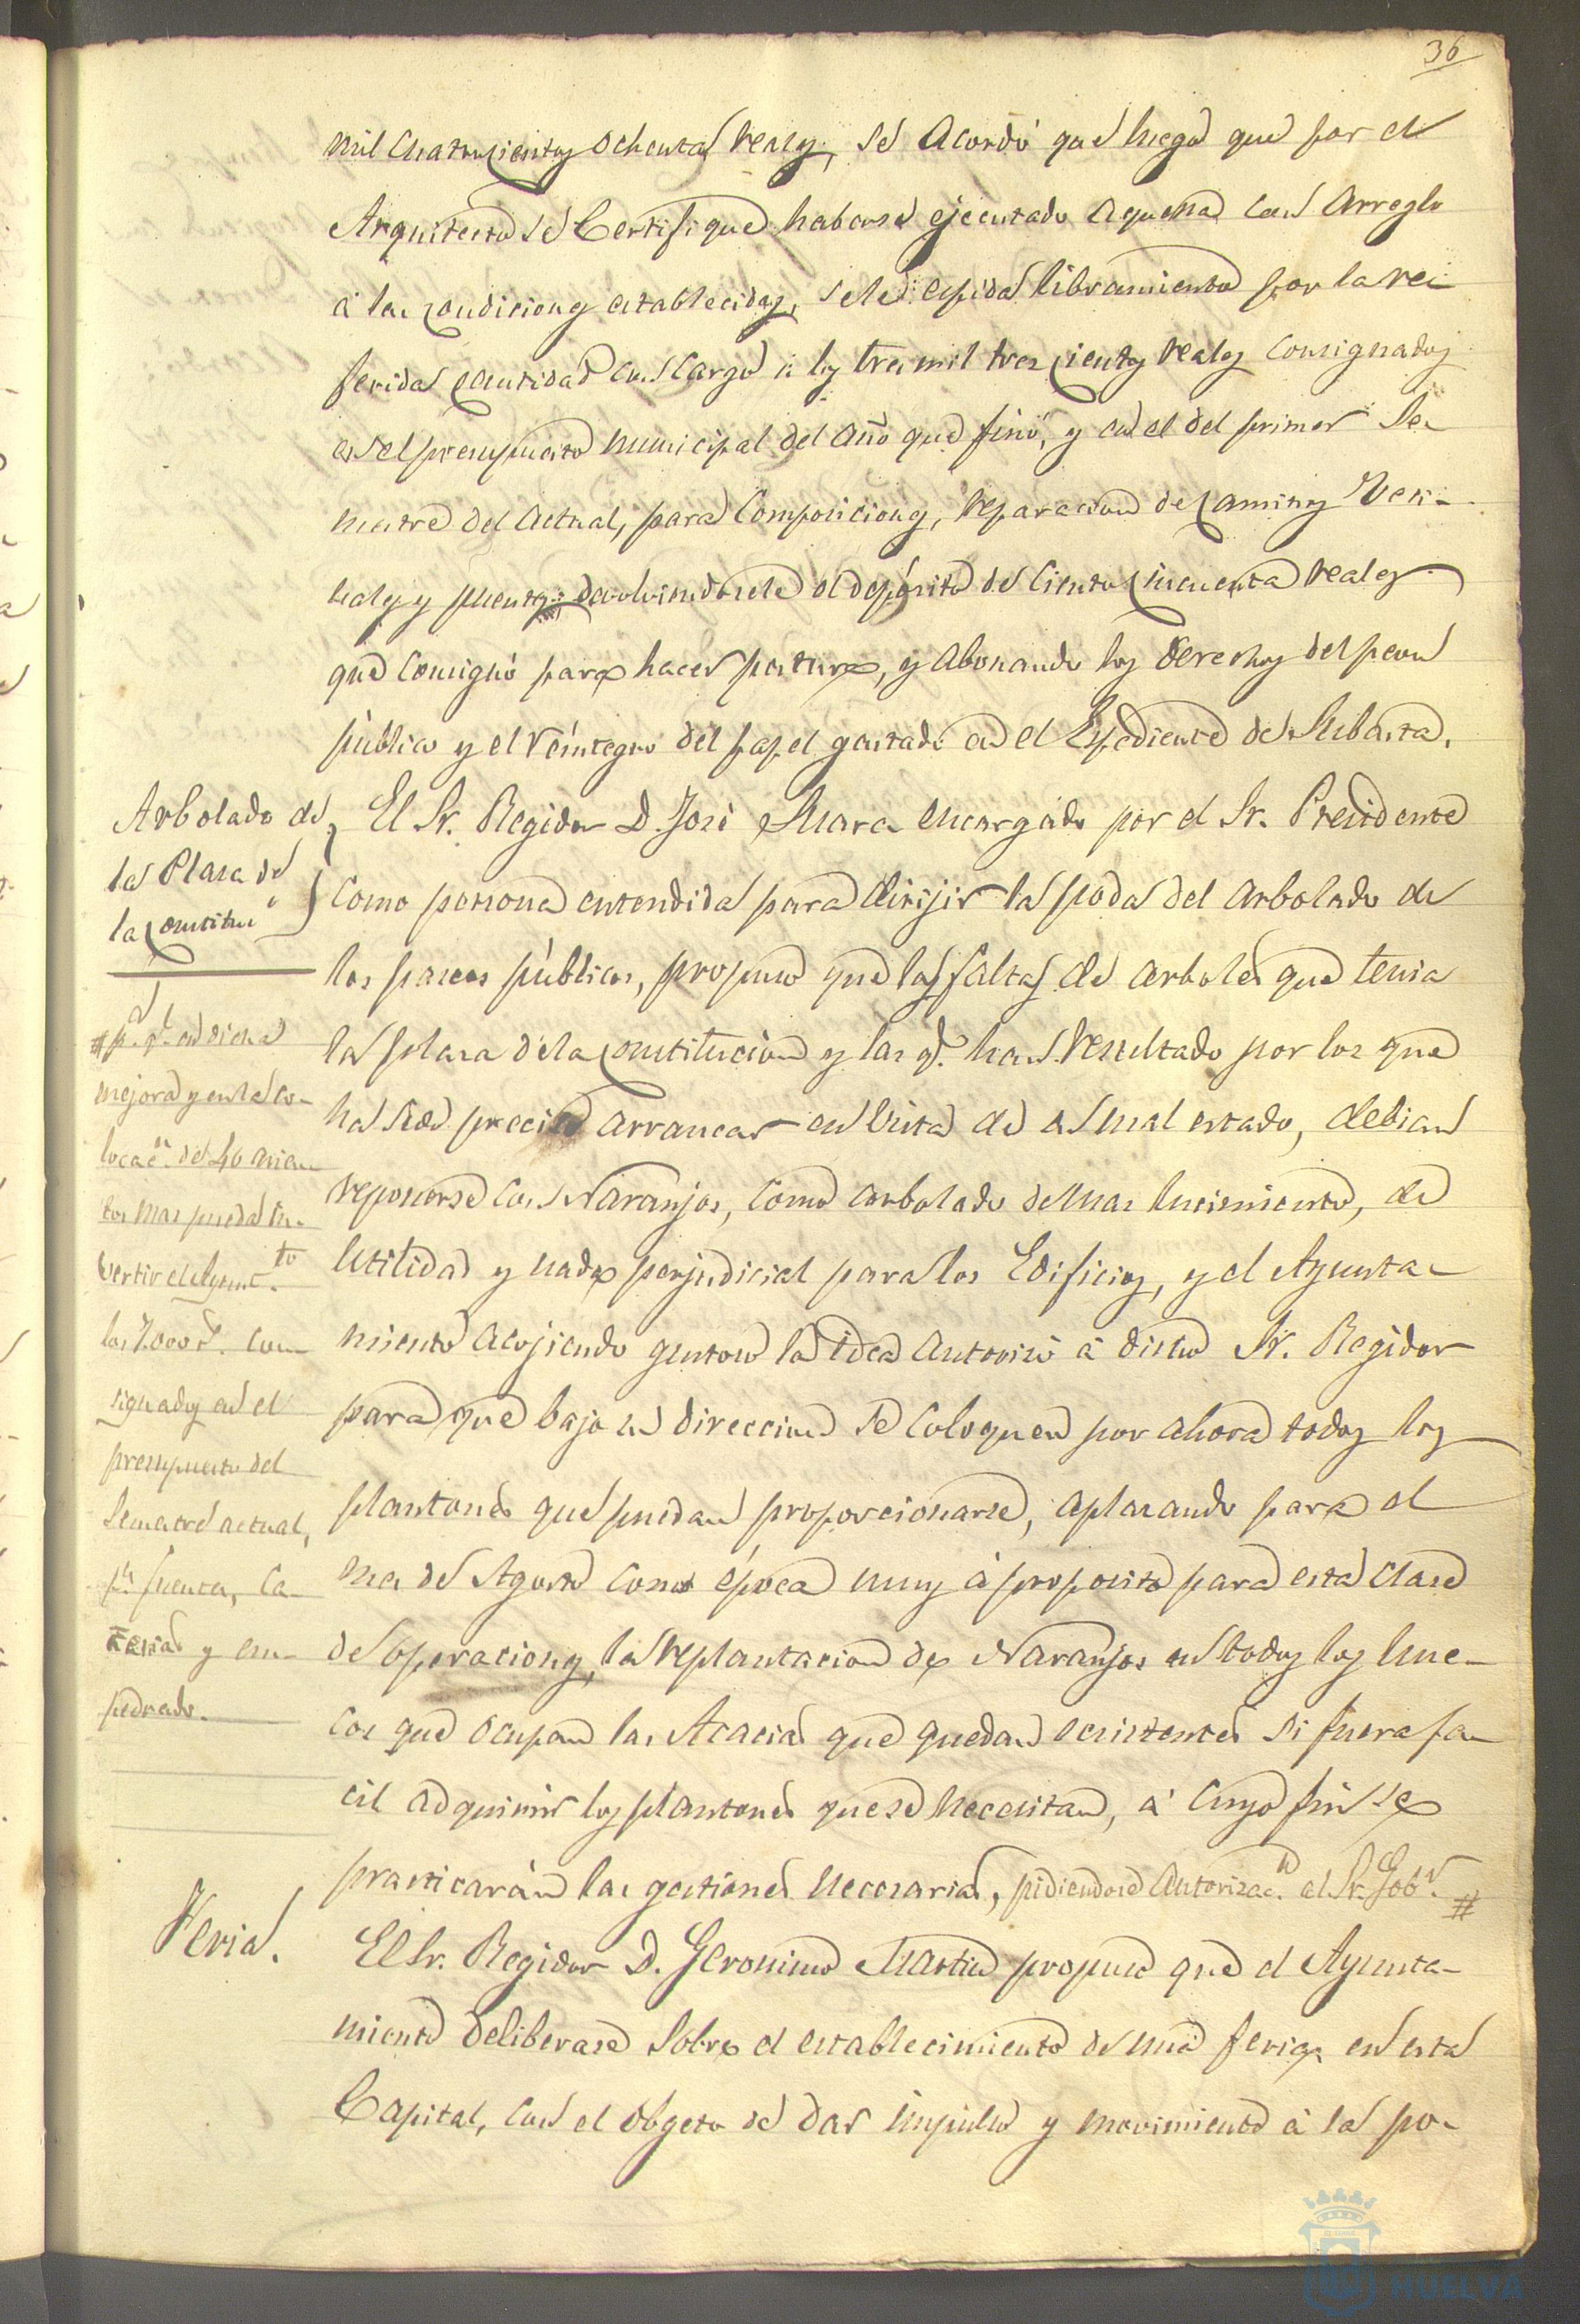 36
mil cuatrocientos ochenta reales, se acordó que luego que por el
Arquitecto se Certifique haberse ejecutado aquella con arreglo
á las condiciones establecidas, se le espida libramiento por la re-
ferida cantidad con cargo á los tres mil trescientos reales consignados
en el presupuesto municipal del año que finó, y en el del primer Se-
mestre del actual, para Composiciones, reparacion de Caminos Veci-
nales y puentes; devolviendosele el depósito de ciento cincuenta reales
que consignó para hacer postura, y abonando los derechos del peon
público y el reintegro del papel gastado en el Espediente de Subasta.
Arbolado de
la Plasa de
la Constitu.ⁿ
El Sr. Regidor D. José Mara encargado por el Sr. Presidente
como persona entendida para dirijir la poda del arbolado de
los paseos públicos, propuso que las faltas de arboles que tenia
la plasa de la Constitucion y las q.ᵉ han resultado por los que
ha sido preciso arrancar en vista de su mal estado, debian
reponerse con Naranjos, como arbolado de mas lucimiento, de
utilidad y nada perjudicial para los Edificios, y el Ayunta-
miento acojiendo gustoso la idea autorizó á dicho Sr. Regidor
para que bajo su direccion se coloquen por ahora todos los
plantones que puedan proporcionarse, aplazando para el
mes de Agosto como época muy á proposito para esta clase
de operaciones, la replantacion de Naranjos en todos los hue-
cos que ocupan las Acacias que quedan ecsistentes si fuera fa-
cil adquirir los plantones que se necesitan, á cuyo fin se
practicarán las gestiones necesarias, pidiendose autorizac.ⁿ al Sr. Gob.ʳ #
# p.ª q.ᵉ en dicha
mejora y en la co-
locac.ⁿ de 40 asien-
tos mas pueda in-
vertir el Ayunt.ᵗᵒ
los 7.000 r.ˢ con-
signados en el
presupuesto del
Semestre actual,
p.ª fuentes, ca-
ñerias y em-
pedrado.
Feria.
El Sr. Regidor D. Geronimo Martin propuso que el Ayunta-
miento deliberase sobre el establecimiento de una feria en esta
Capital, con el objeto de dar impulso y movimiento á la po-
HUELVA